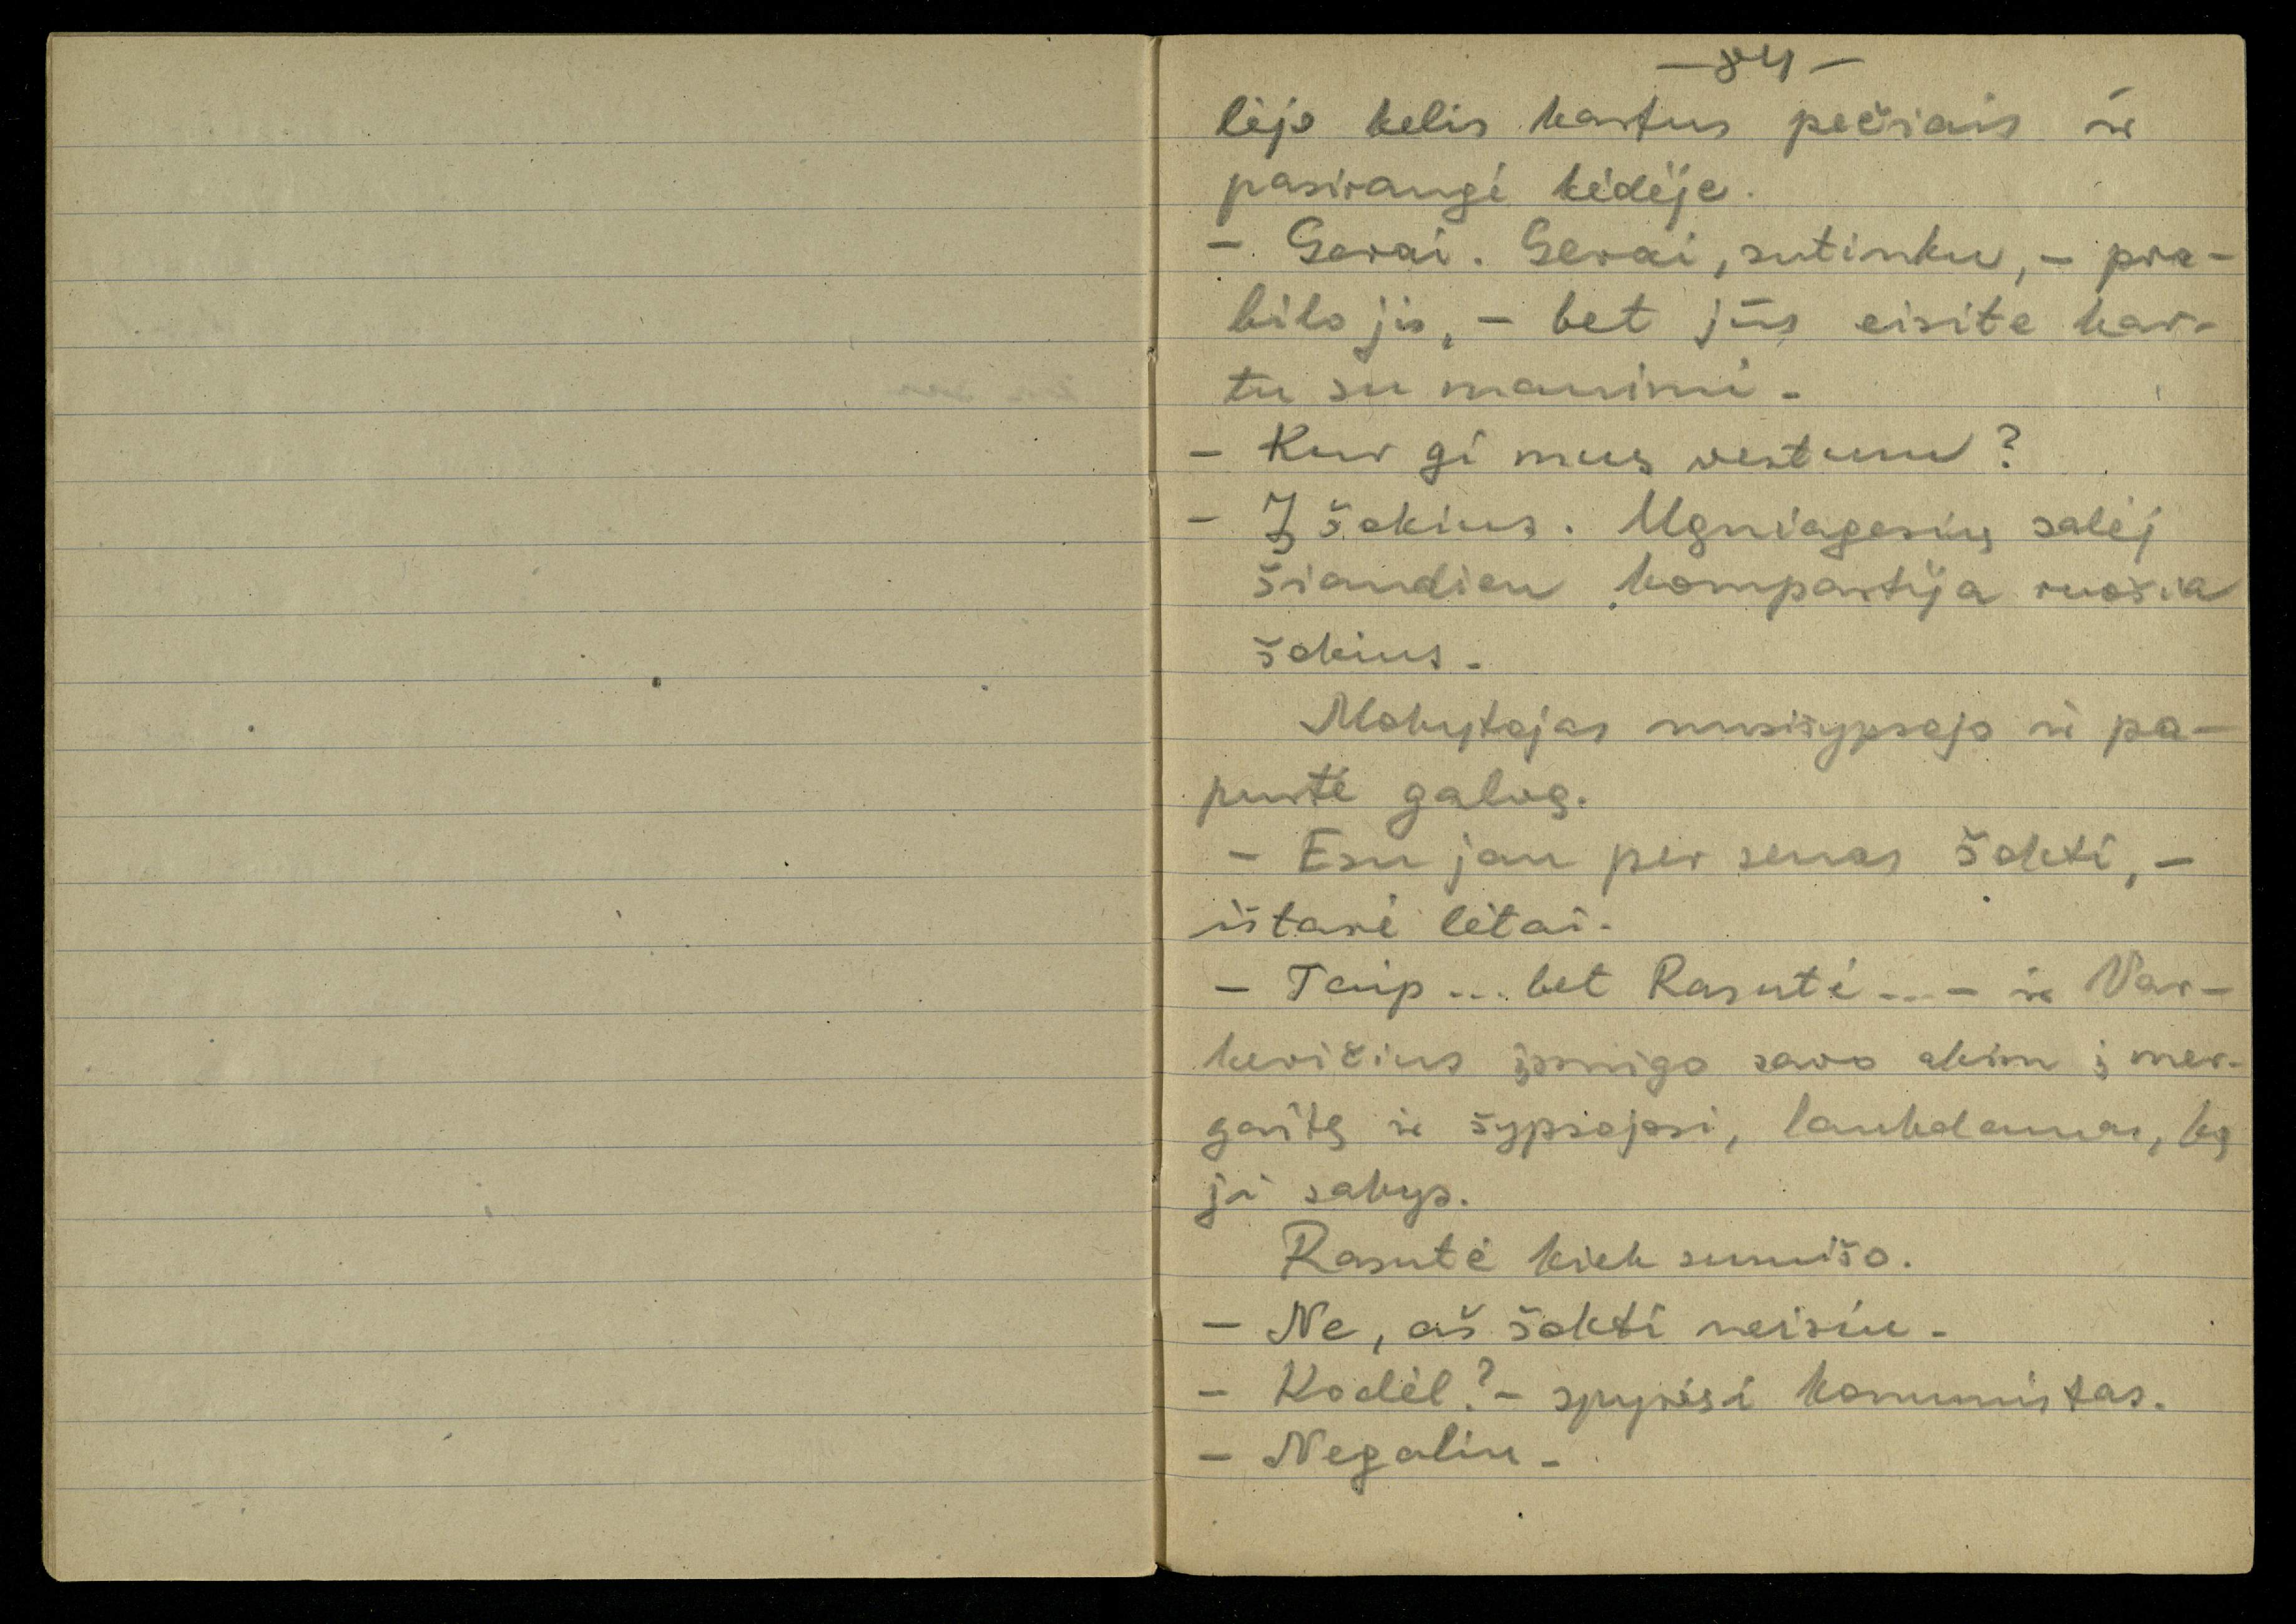 — 84 —
lėjo kelis kartus pečiais ir
pasirangė kėdėje.
– Gerai. Gerai, sutinku, – pra-
bilo jis, – bet jūs eisite kar-
tu su manimi.
– Kur gi mus vestum?
– Į šokius. Ugniagesių salėj
šiandien kompartija ruošia
šokius.
Mokytojas nusišypsojo ir pa-
purtė galvą.
– Esu jau per senas šokti, –
ištarė lėtai.
– Taip... bet Rasutė... – ir Var-
kevičius įsmigo savo akim į mer-
gaitę ir šypsojosi, laukdamas, ką
ji sakys.
Rasutė kiek sumišo.
– Ne, aš šokti neisiu.
– Kodėl? – spyrėsi komunistas.
– Negaliu.